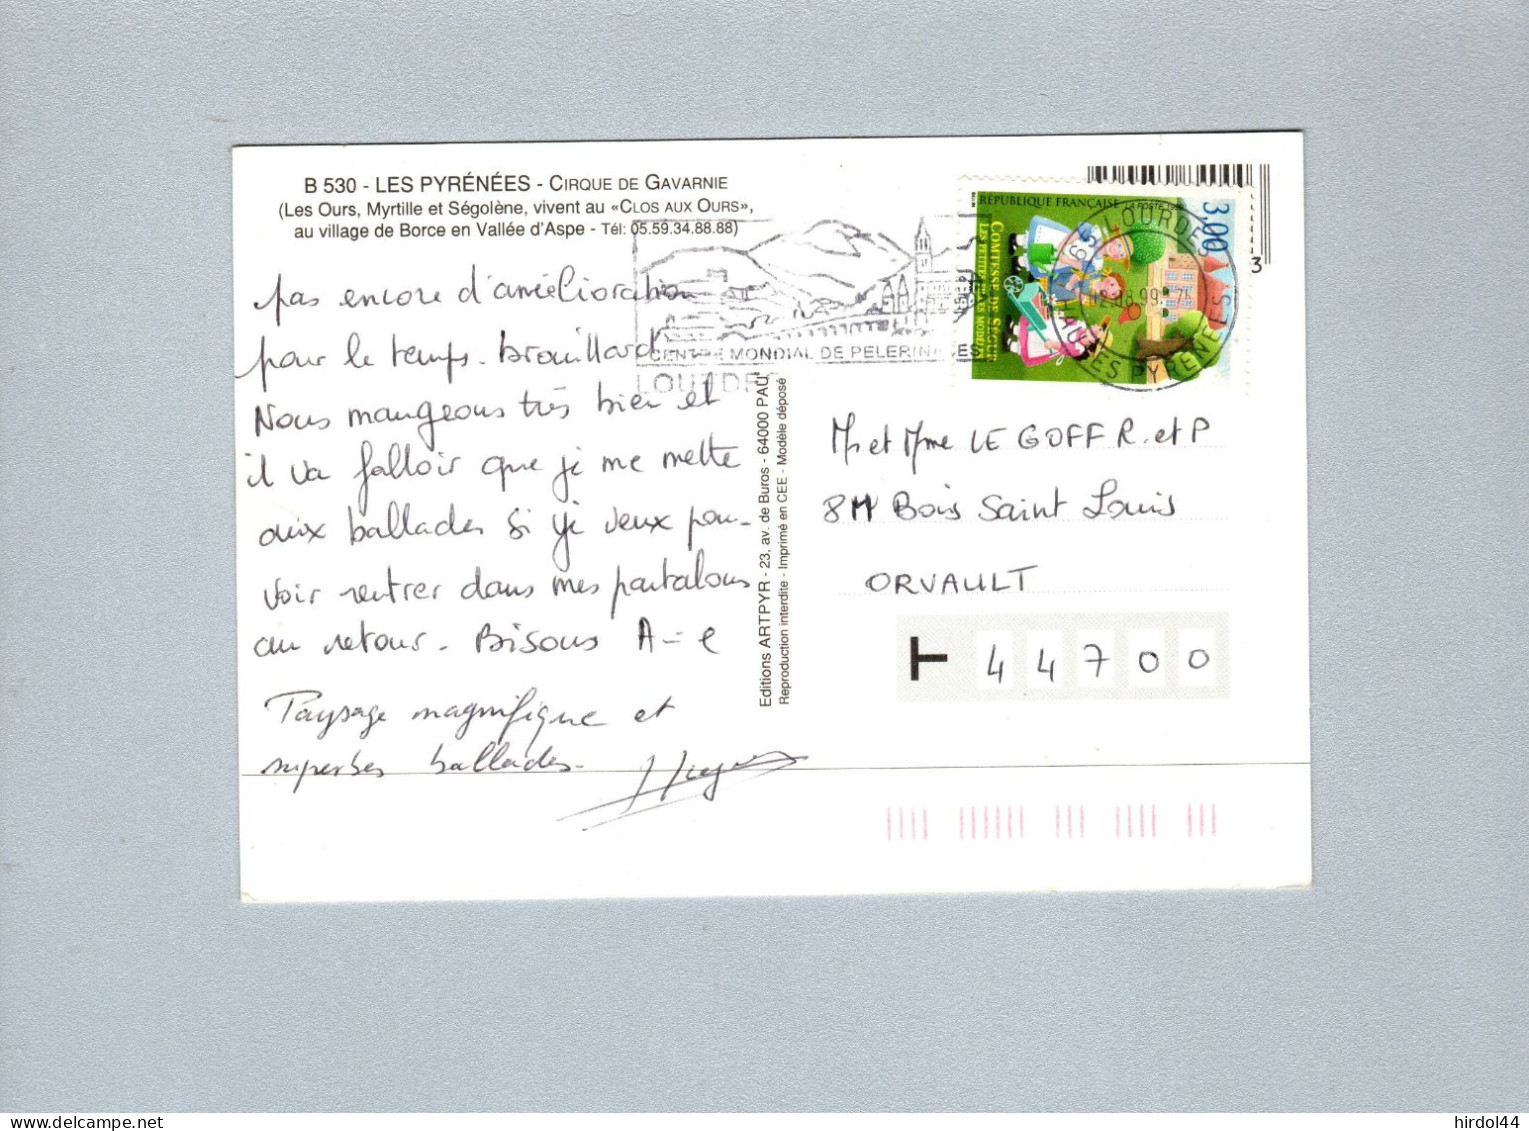 B 530 - LES PYRÉNÉES - CIRQUE DE GAVARNIE
(Les Ours, Myrtille et Ségolène, vivent au «CLOS AUX OURS»,
au village de Borce en Vallée d'Aspe - Tél: 05.59.34.88.88)
pas encore d'amélioration
pour le temps. Brouillard
Nous mangeons très bien et
il va falloir que je me mette
aux ballades si je veux pou-
voir rentrer dans mes pantalons
au retour. Bisous A-e
Paysage magnifique et
superbes ballades.
CENTRE MONDIAL DE PELERINAGES
LOURDES
Editions ARTPYR - 23, av. de Buros - 64000 PAU
Reproduction interdite - Imprimé en CEE - Modèle déposé
RÉPUBLIQUE FRANÇAISE LA POSTE
3,00
COMTESSE DE SÉGUR
LES PETITES FILLES MODÈLES
65 LOURDES
HAUTES PYRENEES
3
Mr et Mme LE GOFF R. et P
8M Bois Saint Louis
ORVAULT
44700
hirdol44